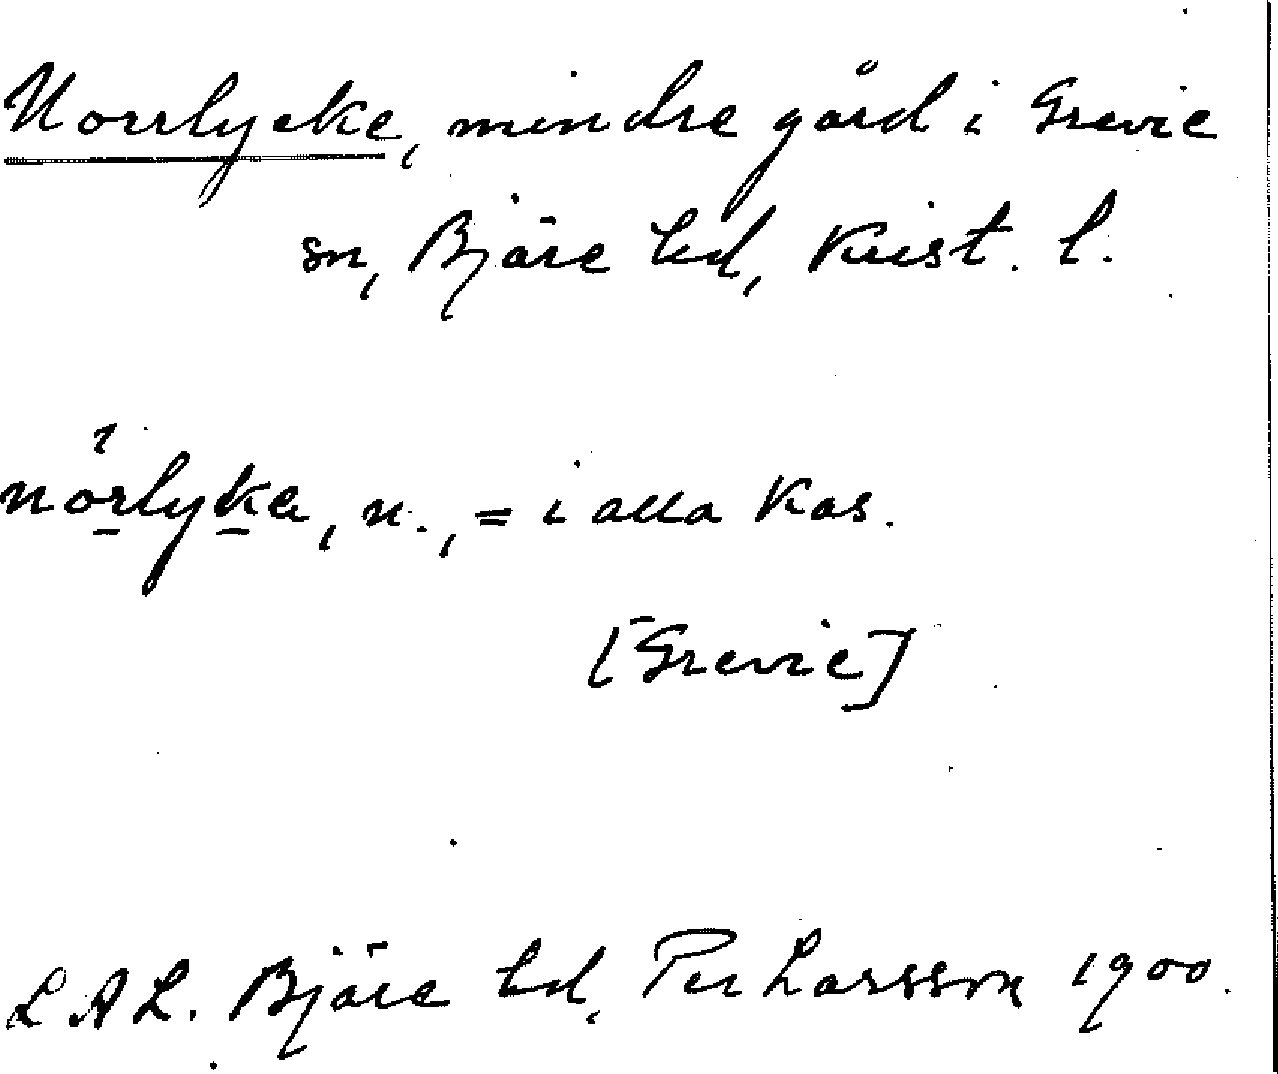 Norrlycke, mindre gård i Grevie
sn, Bjäre hd, Krist. l.
nörlyka, n., = i alla kas.
[Grevie]
LAL. Bjäre hd, Per Larsson 1900.